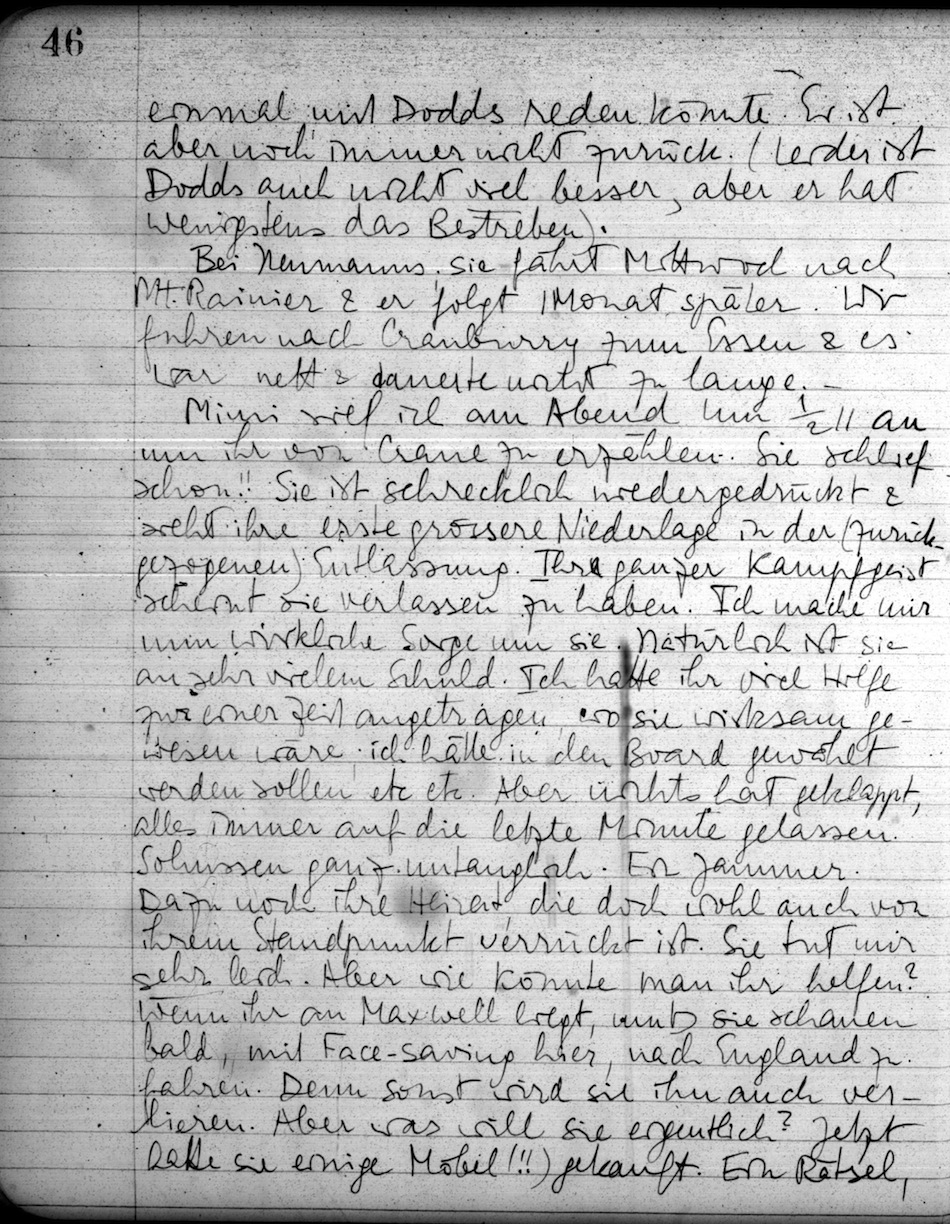 46
einmal mit Dodds reden könnte. Er ist
aber noch immer nicht zurück. (Leider ist
Dodds auch nicht viel besser, aber er hat
wenigstens das Bestreben).
Bei Neumanns, sie fährt Mittwoch nach
Mt. Rainier & er folgt 1 Monat später. Wir
fuhren nach Cranburry zum Essen & es
war nett & dauerte nicht zu lange. –
Mimi rief ich am Abend um ½ 11 an
um ihr von Crane zu erzählen. Sie schlief
schon!! Sie ist schrecklich niedergedrückt &
sieht ihre erste grössere Niederlage in der (zurück-
gezogenen) Entlassung. Ihr ganzer Kampfgeist
scheint sie verlassen zu haben. Ich mache mir
nun wirkliche Sorge um sie. Natürlich ist sie
an sehr vielem Schuld. Ich hatte ihr viel Hilfe
zu einer Zeit angetragen, wo sie wirksam ge-
wesen wäre, ich hätte in den Board gewählt
werden sollen etc etc. Aber nichts hat geklappt,
alles immer auf die letzte Minute gelassen.
ganz untauglich. Ein Jammer.
Dazu noch ihre Heirat, die doch wohl auch von
ihrem Standpunkt verrückt ist. Sie tut mir
sehr leid. Aber wie könnte man ihr helfen?
Wenn ihr an Maxwell liegt, muß sie schauen
bald, mit Face-saving hier, nach England zu
fahren. Denn sonst wird sie ihn auch ver-
lieren. Aber was will sie eigentlich? Jetzt
hatte sie einige Möbel (!!) gekauft. Ein Rätsel,